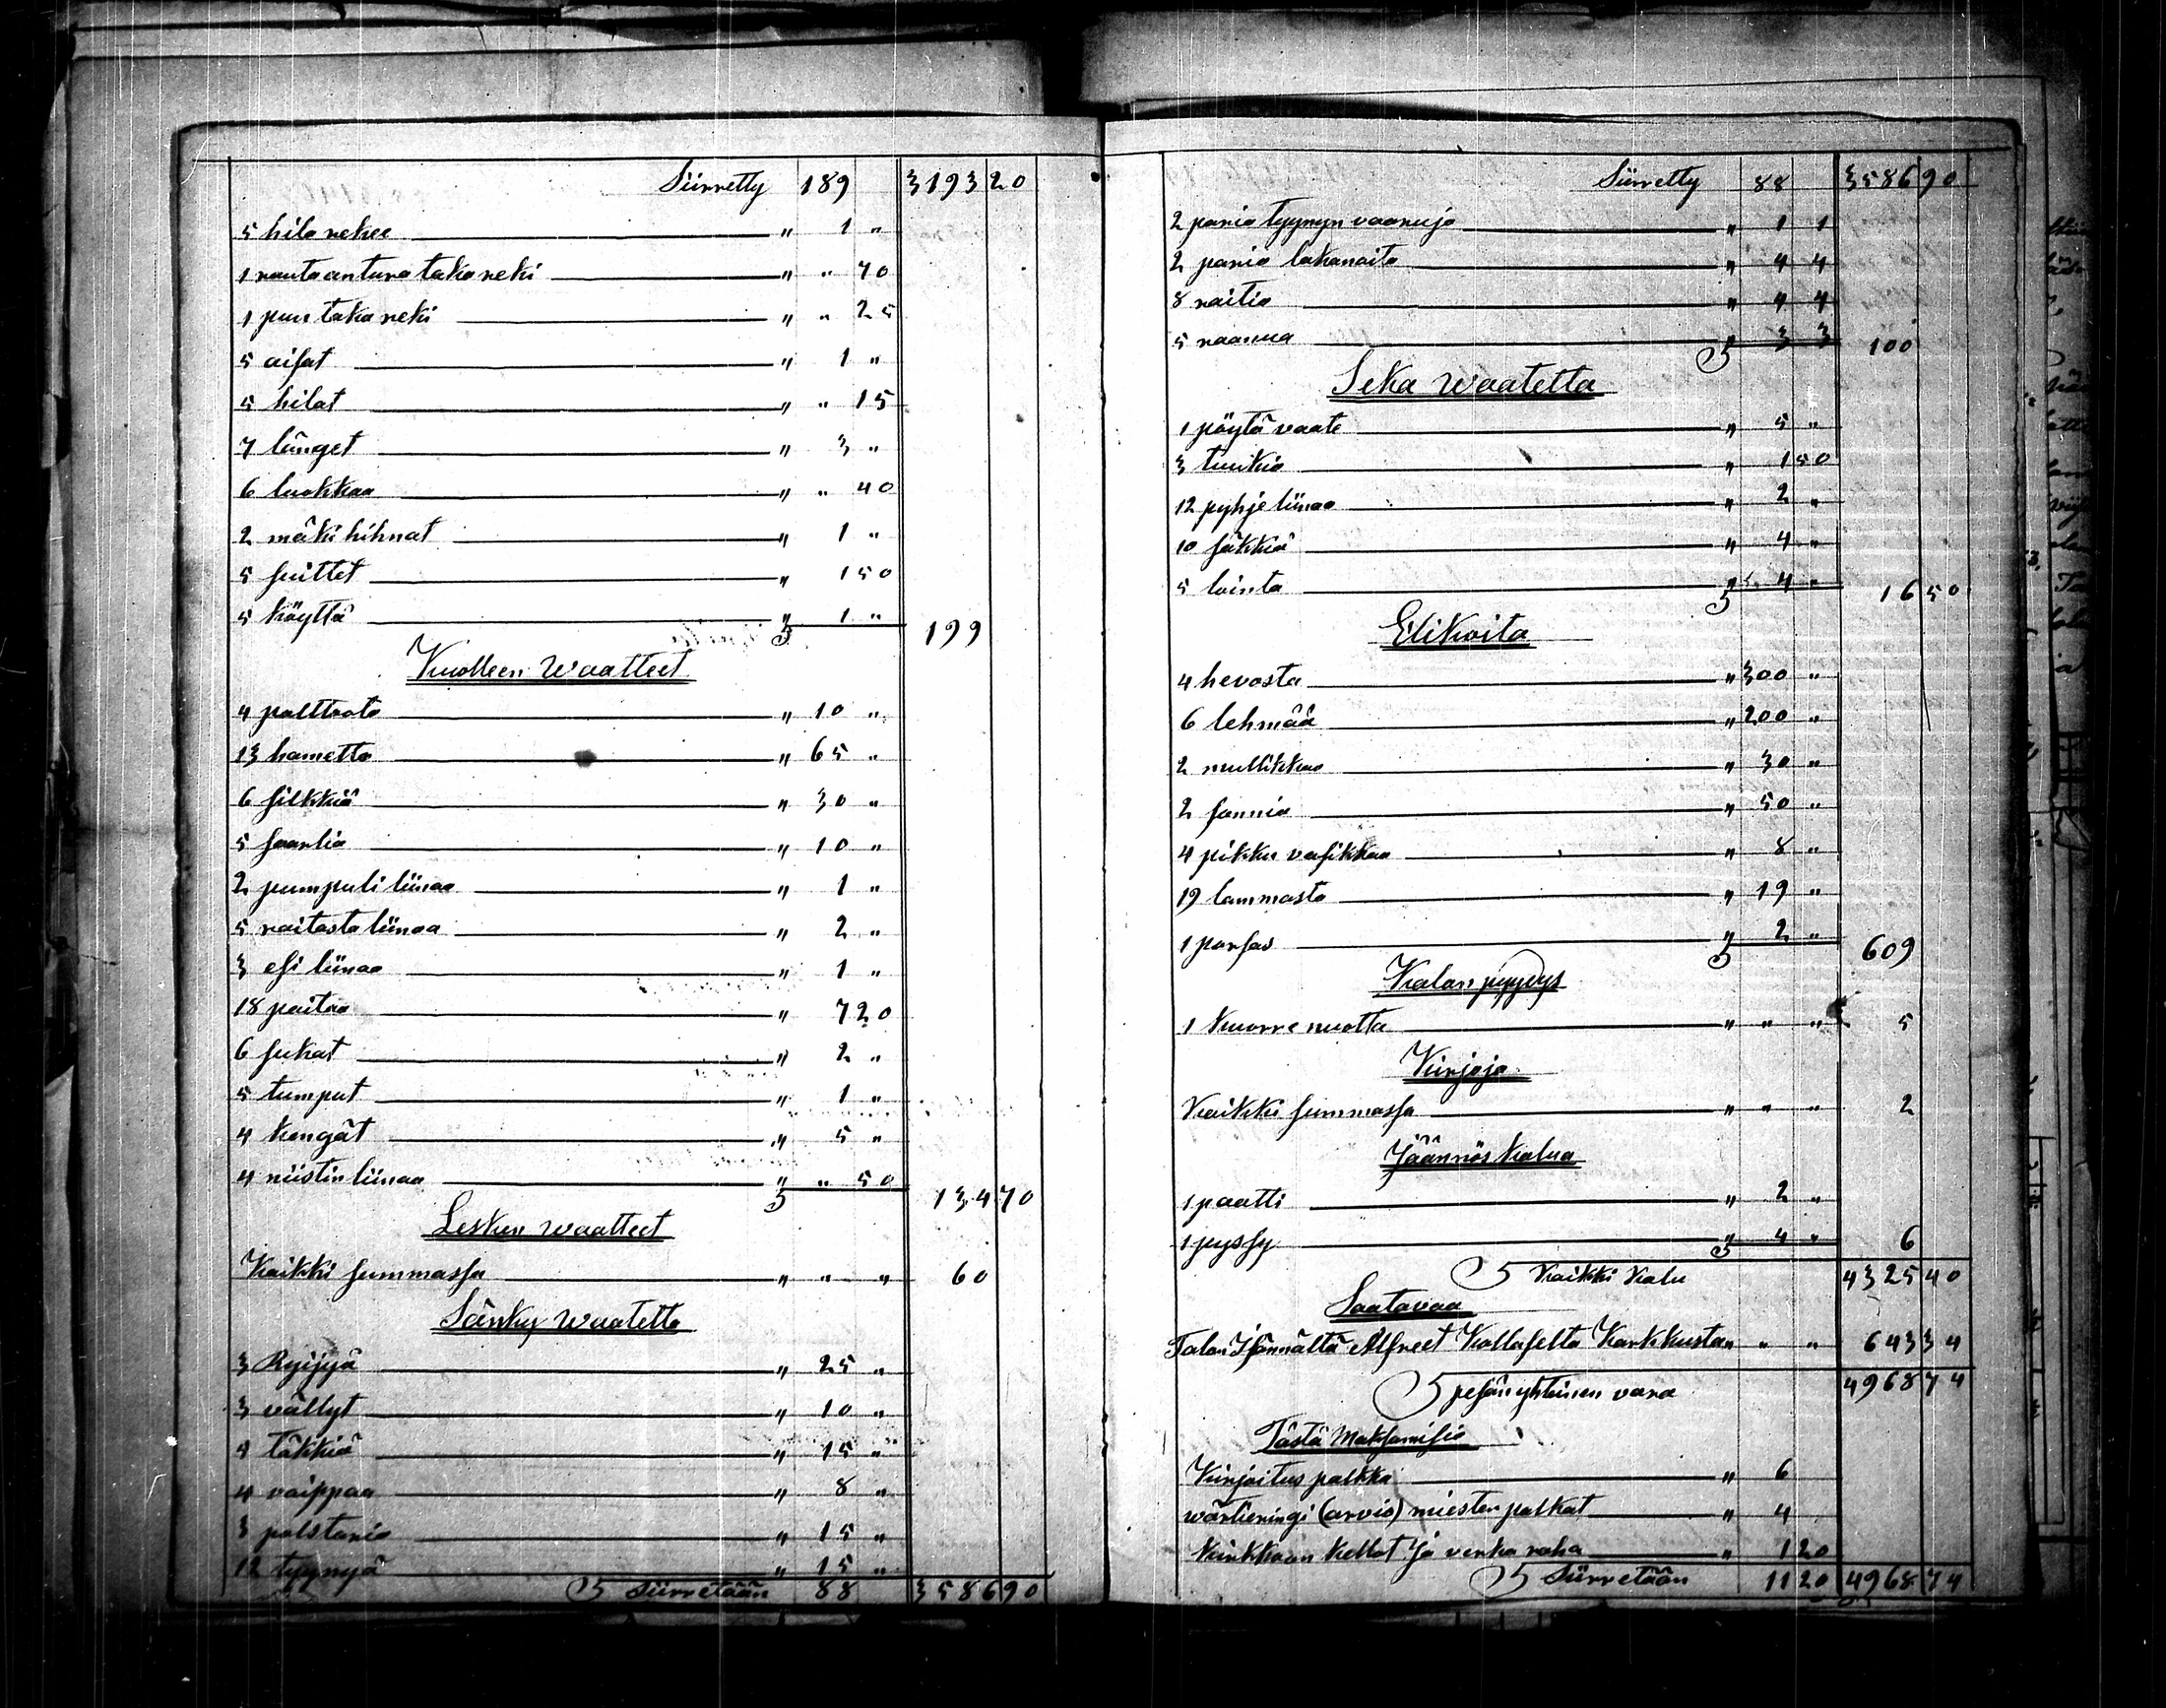 Siirretty 189 3193 20
5 hila rekee " 1 "
1 rauta antura taka reki " " 70
1 puu taka reki " " 25
5 aisat " 1 "
5 hilat " " 15
7 länget " 3 "
6 luokkaa " " 40
2 mäki hihnat " 1 "
5 suittet " 1 50
5 köyttä " 1 " 199
Kuolleen Waatteet
4 palttoota " 10 "
13 hametta " 65 "
6 silkkiä " 30 "
5 saalia " 10 "
2 pumpuli liinaa " 1 "
5 raitasta liinaa " 2 "
3 esi liinaa " 1 "
18 paitaa " 7 20
6 sukat " 2 "
5 tumput " 1 "
4 kengät " 5 "
4 niistin liinaa " " 50 134 70
Lesken Waatteet
Kaikki summassa " " " 60
Sänky Waatetta
3 Ryijyä " 25 "
3 vällyt " 10 "
4 täkkiä " 15 "
4 vaippaa " 8 "
3 polstaria " 15 "
12 tyynyä " 15 "
S Siirretään 88 3586 90
Siirretty 88 3586 90
2 paria tyynyn vaaruja " 1 1
2 paria lakanoita " 4 4
8 raitia " 4 4
5 raanua " 3 3 100
Seka Waatetta
1 pöytä vaate " 5 "
3 tuukia " 1 50
12 pyhje liinaa " 2 "
10 säkkiä " 4 "
5 lointa " 4 " 16 50
Elikoita
4 hevosta " 300 "
6 lehmää " 200 "
2 mullikkaa " 30 "
2 sonnia " 50 "
4 pikku vasikkaa " 8 "
19 lammasta " 19 "
1 porsas " 2 " 609
Kalan pyydys
1 Kuorre nuotta " " " 5
Kirjoja
Kaikki summassa " " " 2
Jäännös Kalua
1 paatti " 2 "
1 pyssy " 4 " 6
S Kaikki Kalu 4325 40
Saatavaa
Talon Isännältä Alfreet Kollaselta Karkkusta " " " 643 34
S pesän yhteinen vara 4968 74
Tästä Maksamisia
Kirjoitus palkka " 6
wärtieringi (arvio) miesten palkat " 4
Kirkkoon Kellot Ja verka raha " 1 20
S Siirretään 11 20 4968 74